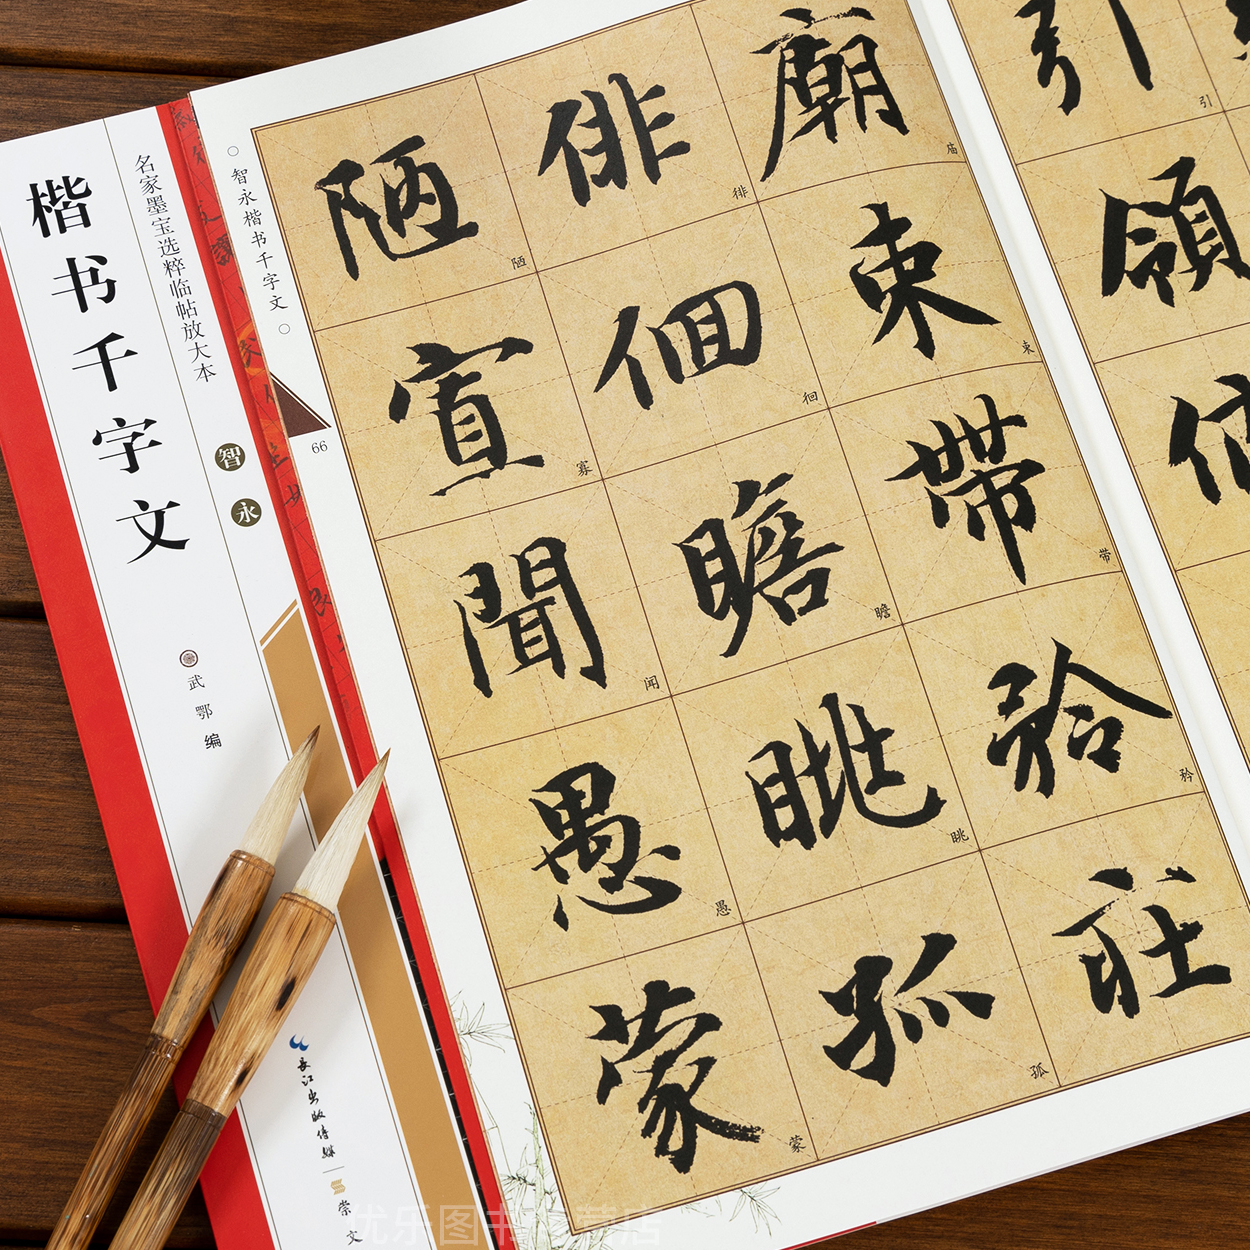 楷书千字文
名家墨宝选粹临帖放大本
智永
武鄂编
长江出版传媒
崇文
○智永楷书千字文○
66
引 引
領
俯
廟 庙
束 束
帶 带
矜 矜
莊
徘 徘
徊 徊
瞻 瞻
眺 眺
孤 孤
陋 陋
寡 寡
聞 闻
愚 愚
蒙 蒙
优乐图书